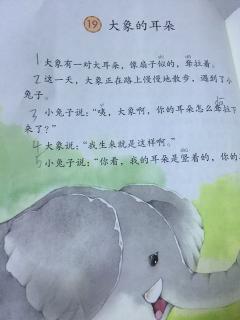 19 大象的耳朵
1 大象有一对大耳朵，像扇子似的，耷拉着。
2 这一天，大象正在路上慢慢地散步，遇到了小
兔子。
3 小兔子说：“咦，大象啊，你的耳朵怎么耷拉下
来了？”
4 大象说：“我生来就是这样啊。”
5 小兔子说：“你看，我的耳朵是竖着的，你的